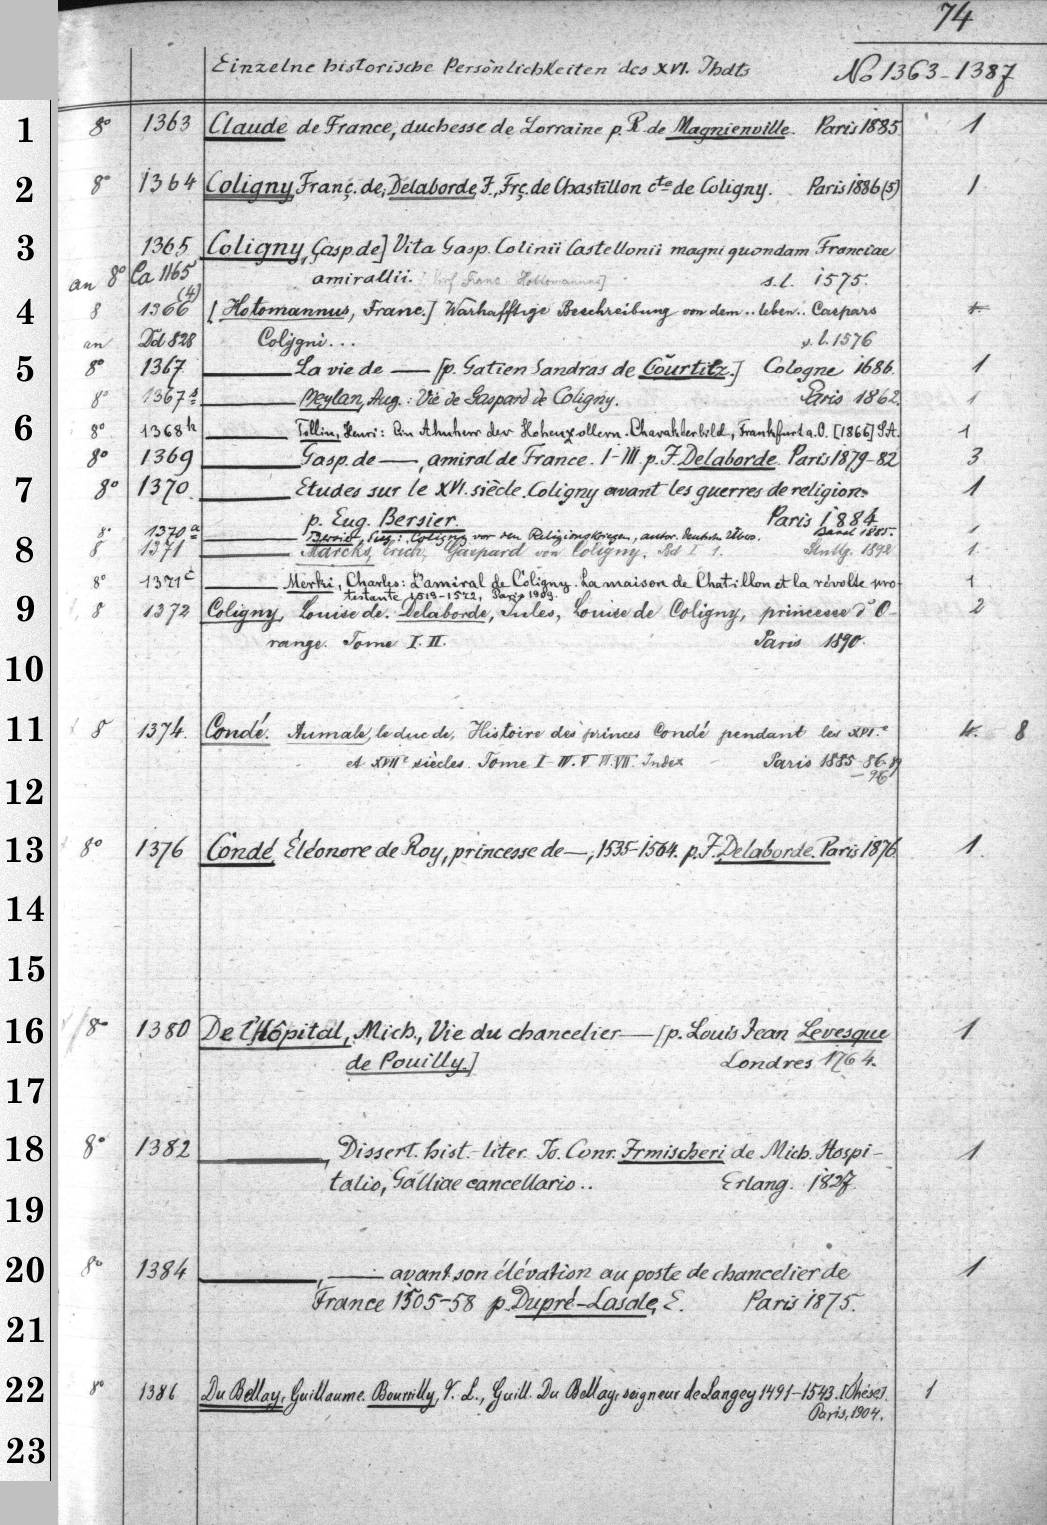 74
Einzelne historische Persönlichkeiten des XVI. Jhdts No 1363-1387
1 8° 1363 Claude de France, duchesse de Lorraine p. R. de Magnienville. Paris 1885 1
2 8° 1364 Coligny, Franç. de, Delaborde J., Frç. de Chastillon cte de Coligny. Paris 1886 (5) 1
3 1365 Coligny, Gasp. de] Vita Gasp. Colinii Castellonii magni quondam Franciae
an 8° Ca 1165 (4) amirallii. Franc. Hottomannus] s.l. 1575.
4 8 1366 [Hotomannus, Franc.] Warhafftige Beschreibung von dem .. leben .. Caspars 1
an Dd 828 Coligni... s.l. 1576
5 8° 1367 La vie de — [p. Gatien Sandras de Courtilz.] Cologne 1686. 1
8° 1367a Meylan, Aug.: Vie de Gaspard de Coligny. Paris 1862. 1
6 8° 1368h Tollin, Henri: Ein Ahnherr der Hohenzollern. Charakterbild, Frankfurt a.O. [1866] S.A. 1
8° 1369 Gasp. de —, amiral de France. I-III p. J. Delaborde. Paris 1879-82 3
7 8° 1370 Etudes sur le XVI. siècle. Coligny avant les guerres de religion. 1
p. Eug. Bersier. Paris 1884
8° 1370a Bersier, Eug.: Coligny vor den Religionskriegen, autor. deutsche Basel 1885. 1
8 8 1371 Marcks, Erich, Gaspard von Coligny. Bd I 1. Stuttg. 1892 1
8° 1371c Merki, Charles: L'amiral de Coligny. La maison de Chatillon et la révolte pro-
1
testante 1519-1572, Paris 1909.
9 8 1372 Coligny, Louise de. Delaborde, Jules, Louise de Coligny, princesse d'O- 2
range. Tome I. II. Paris 1890.
10
11 8 1374. Condé. Aumale, le duc de, Histoire des princes Condé pendant les XVI.e 4. 8
et XVIIe siècles. Tome I-IV. V VI. VII. Index Paris 1885-86. 89
-96
12
13 8° 1376 Condé Éléonore de Roy, princesse de —, 1535-1564. p. J. Delaborde. Paris 1876. 1.
14
15
16 8° 1380 De l'Hôpital, Mich., Vie du chancelier — [p. Louis Jean Levesque 1
de Pouilly.] Londres 1764.
17
18 8° 1382 Dissert. hist.-liter. Jo. Conr. Irmischeri de Mich. Hospi- 1
talio, Galliae cancellario .. Erlang. 1827
19
20 8° 1384 , — avant son élévation au poste de chancelier de 1
France 1505-58 p. Dupré-Lasale, E. Paris 1875.
21
22 8° 1386 Du Bellay, Guillaume. Bourrilly, V. L., Guill. Du Bellay, seigneur de Langey 1491-1543. [Thèse]. 1
Paris, 1904.
23